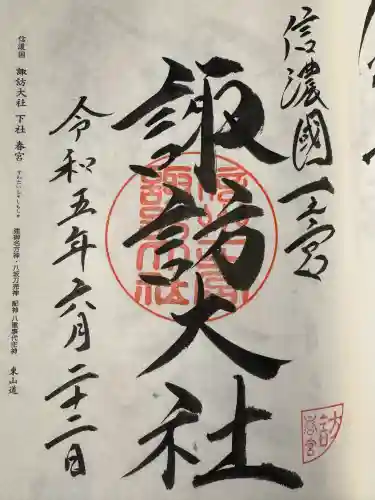 信濃國一之宮
諏訪大社
令和五年六月二十二日
信濃国 諏訪大社 下社 春宮 すわたいしゃしもしゃ
建御名方神・八坂刀売神 配神 八重事代主神 東山道